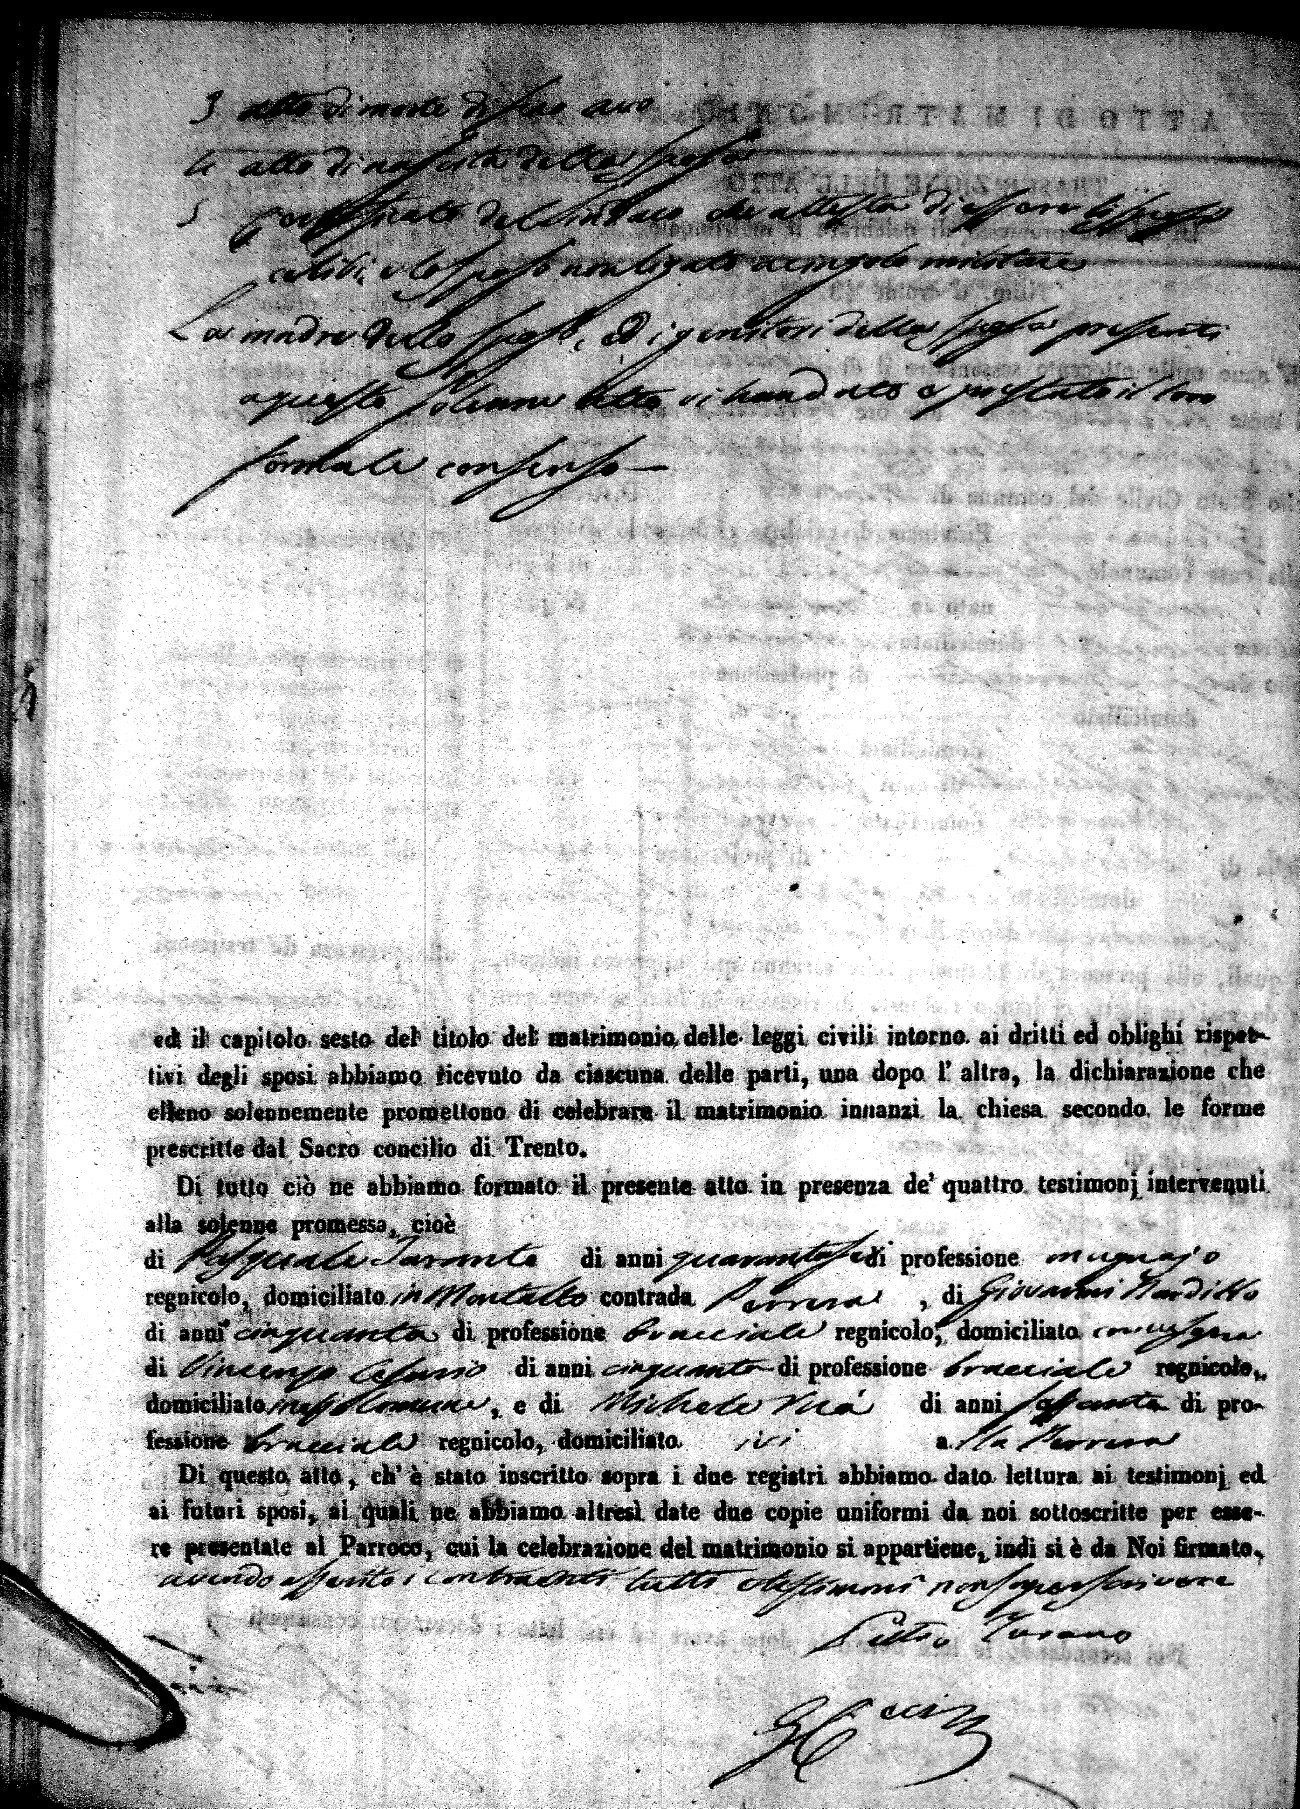 3 atto di morte di suo avo
4 atto di nascita della sposa
5 certificato del Sindaco che attesta di essere li sposi
celibi, e lo sposo non ligato a cingolo militare
La madre dello sposo, ed i genitori della sposa presenti
a questo solenne atto vi han dato e prestato il loro
formale consenso
ed il capitolo sesto del titolo del matrimonio delle leggi civili intorno ai dritti ed oblighi rispet-
tivi degli sposi abbiamo ricevuto da ciascuna delle parti, una dopo l' altra, la dichiarazione che
elleno solennemente promettono di celebrare il matrimonio innanzi la chiesa secondo le forme
prescritte dal Sacro concilio di Trento.
Di tutto ciò ne abbiamo formato il presente atto in presenza de' quattro testimonj intervenuti
alla solenne promessa, cioè
di Pasquale di anni quarantasei di professione mugnajo
regnicolo, domiciliato in Montalto contrada Perrera, di Giovanni
di anni cinquanta di professione bracciale regnicolo, domiciliato
di Vincenzo di anni cinquanta di professione bracciale regnicolo,
domiciliato, e di Michele di anni di pro-
fessione bracciale regnicolo, domiciliato ivi alla Perrera
Di questo atto, ch' è stato inscritto sopra i due registri abbiamo dato lettura ai testimonj ed
ai futuri sposi, ai quali ne abbiamo altresì date due copie uniformi da noi sottoscritte per esse-
re presentate al Parroco, cui la celebrazione del matrimonio si appartiene, indi si è da Noi firmato,
avendo asserito i contraenti tutti e testimoni non saper scrivere
Pietro Turano